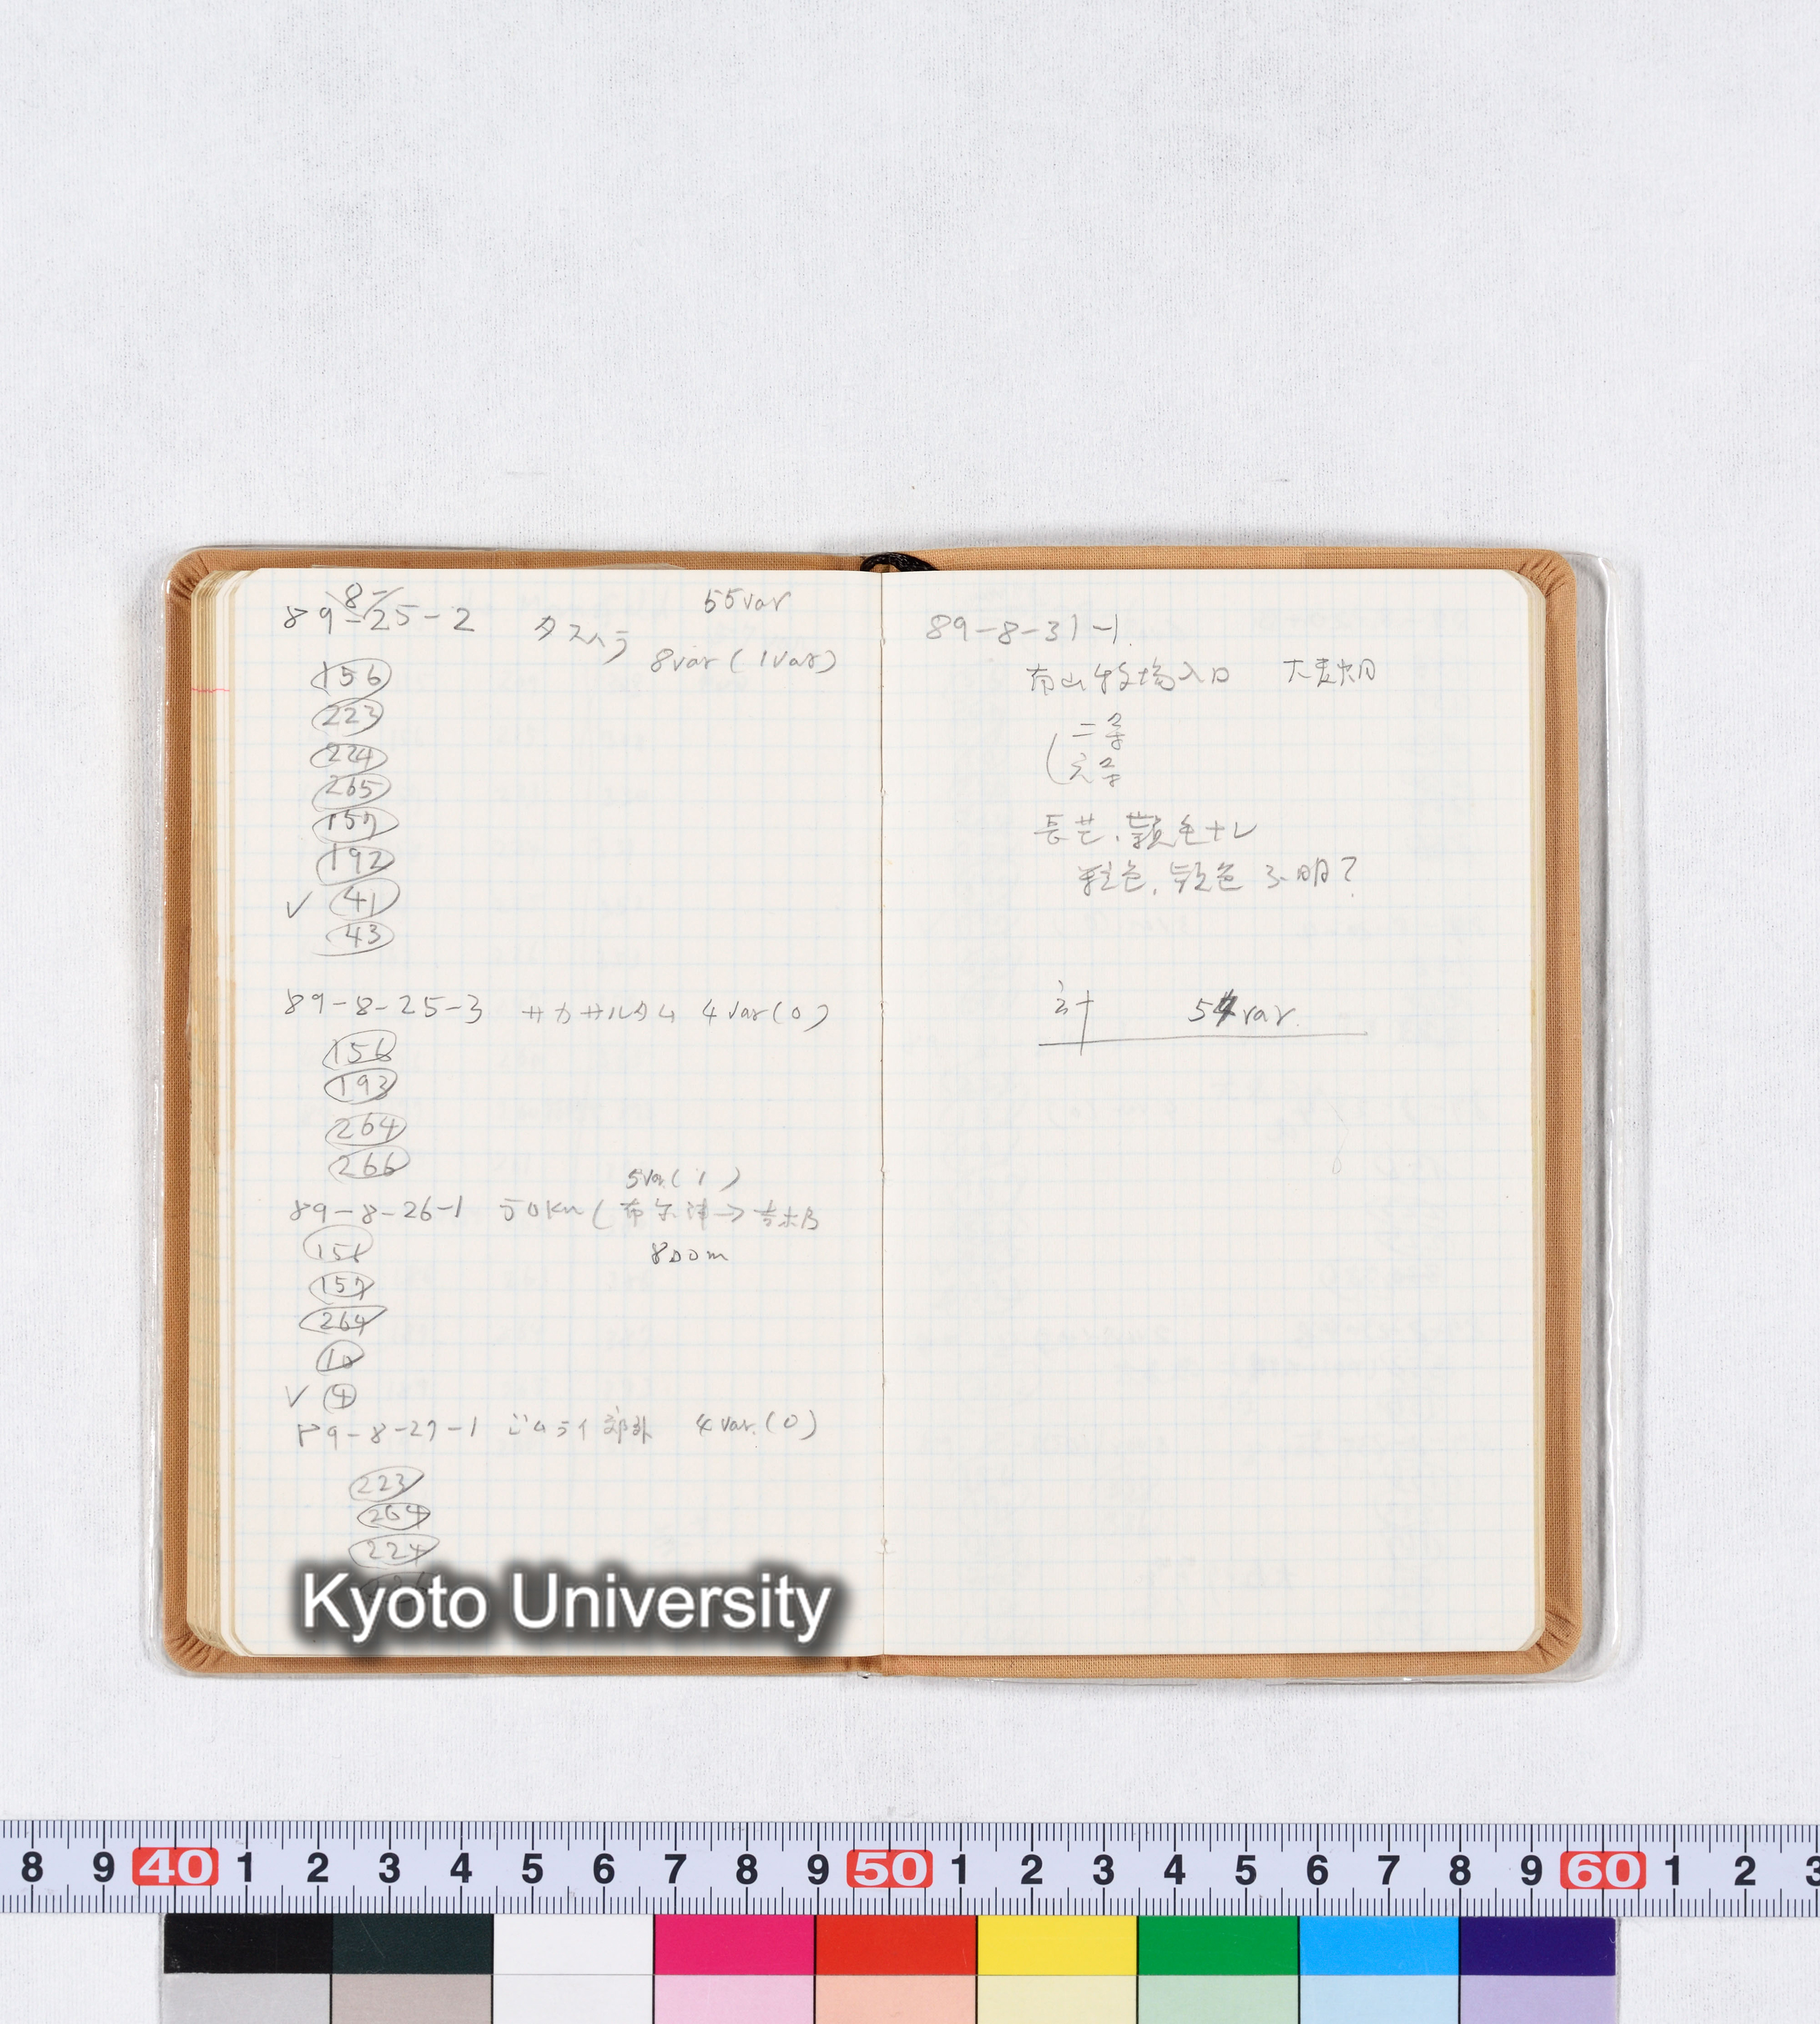 55var
89-8-25-2 タスハラ
8var (1var)
156
223
224
265
157
192
✓ 41
43
89-8-25-3 サカサルタム 4var(0)
156
193
264
266
5var(1)
89-8-26-1 50Km(布尔津→吉木乃
800m
156
157
264
10
✓ 4
89-8-27-1 ジムライ郊外 4var.(0)
223
264
224
89-8-31-1.
牧場入口 大麦畑
二条
六条
長芒、穎色ナシ
粒色、色不明?
計 54var.
Kyoto University
8 9 40 1 2 3 4 5 6 7 8 9 50 1 2 3 4 5 6 7 8 9 60 1 2 3